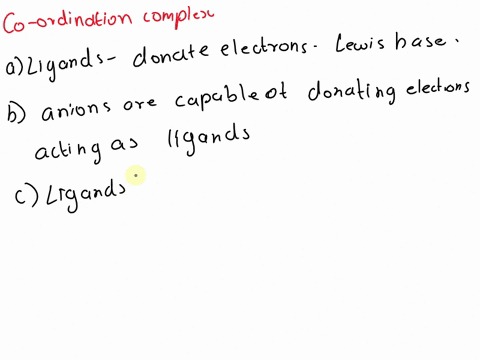 Co-ordination complex
a) Ligands- donate electrons. Lewis base.
b) anions are capable of donating electrons
acting as ligands
c) Ligands